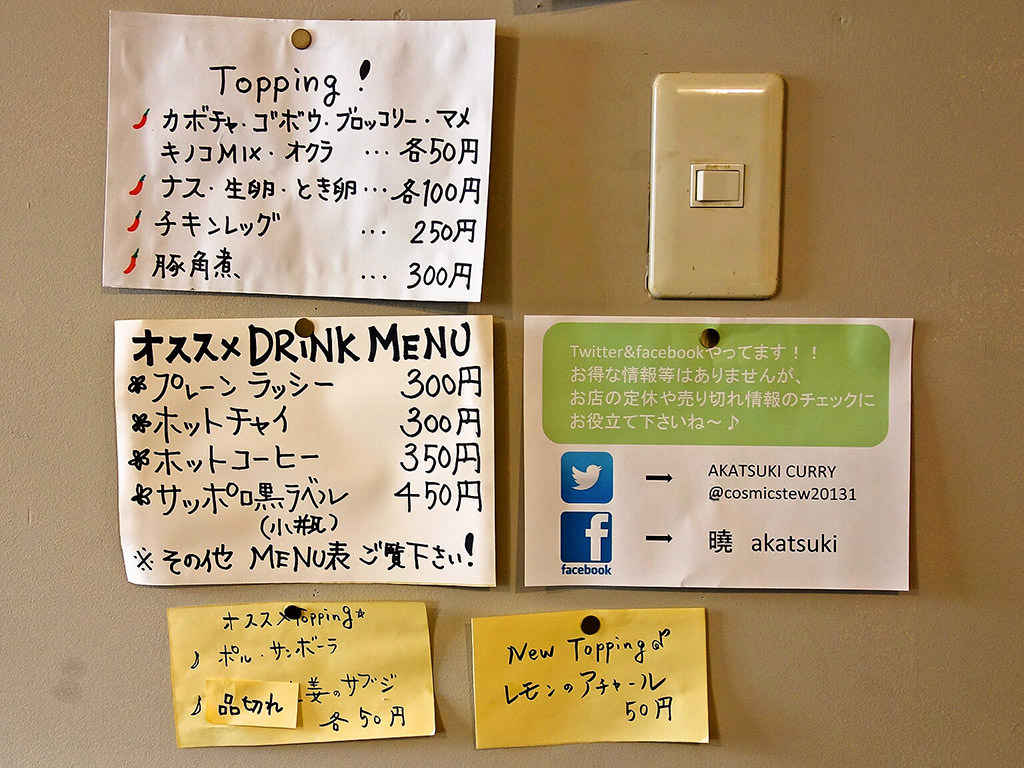 Topping!
カボチャ・ゴボウ・ブロッコリー・マメ
キノコMIX・オクラ ・・・各50円
ナス・生卵・とき卵・・・各100円
チキンレッグ ・・・ 250円
豚角煮 ・・・ 300円
オススメ DRiNK MENU
プレーン ラッシー 300円
ホットチャイ 300円
ホットコーヒー 350円
サッポロ黒ラベル 450円
(小瓶)
※ その他 MENU表 ご覧下さい!
Twitter&facebookやってます!!
お得な情報等はありませんが、
お店の定休や売り切れ情報のチェックに
お役立て下さいね～♪
→ AKATSUKI CURRY
@cosmicstew20131
→ 曉 akatsuki
facebook
オススメTopping☆
ポル・サンボーラ
品切れ 生姜のサブジ
各50円
New Topping♂
レモンのアチャール
50円